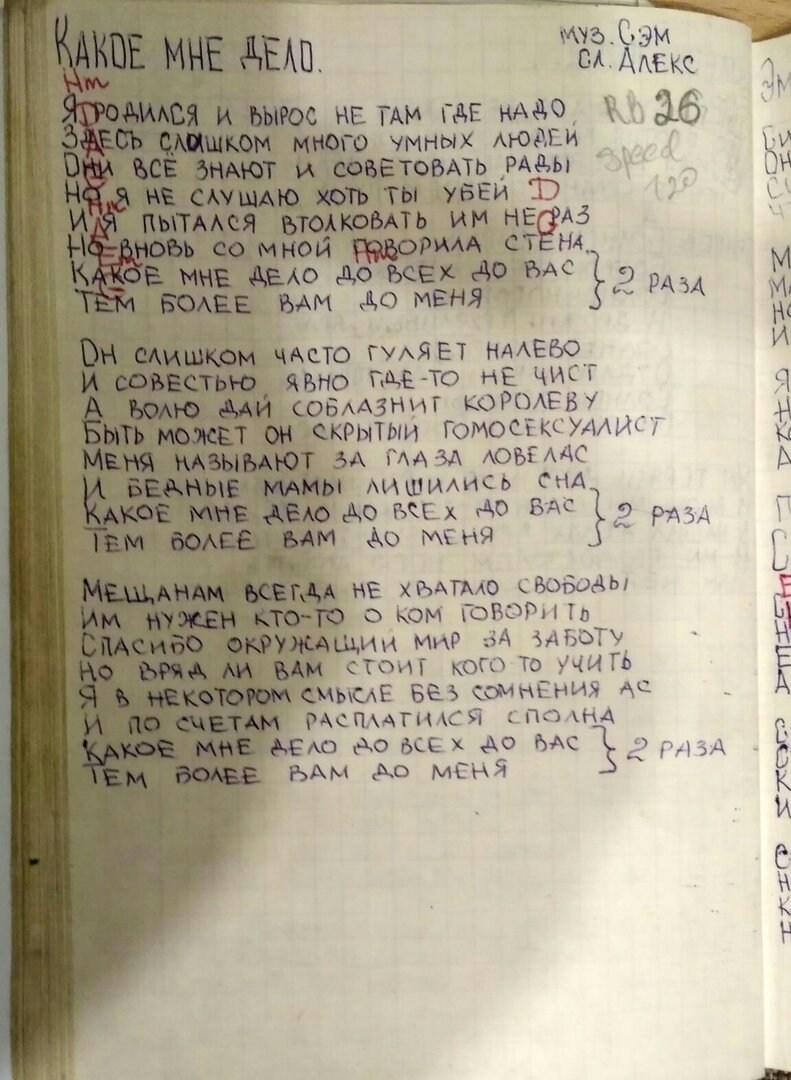 КАКОЕ МНЕ ДЕЛО.
МУЗ. СЭМ
СЛ. АЛЕКС
Hm
Я РОДИЛСЯ И ВЫРОС НЕ ТАМ ГДЕ НАДО
RB 26
ЗДЕСЬ СЛИШКОМ МНОГО УМНЫХ ЛЮДЕЙ
speed
ОНИ ВСЕ ЗНАЮТ И СОВЕТОВАТЬ РАДЫ
120
НО Я НЕ СЛУШАЮ ХОТЬ ТЫ УБЕЙ D
Hm
И Я ПЫТАЛСЯ ВТОЛКОВАТЬ ИМ НЕ РАЗ
G
НО ВНОВЬ СО МНОЙ ГОВОРИЛА СТЕНА
Em Hm
КАКОЕ МНЕ ДЕЛО ДО ВСЕХ ДО ВАС
ТЕМ БОЛЕЕ ВАМ ДО МЕНЯ
} 2 РАЗА
ОН СЛИШКОМ ЧАСТО ГУЛЯЕТ НАЛЕВО
И СОВЕСТЬЮ ЯВНО ГДЕ-ТО НЕ ЧИСТ
А ВОЛЮ ДАЙ СОБЛАЗНИТ КОРОЛЕВУ
БЫТЬ МОЖЕТ ОН СКРЫТЫЙ ГОМОСЕКСУАЛИСТ
МЕНЯ НАЗЫВАЮТ ЗА ГЛАЗА ЛОВЕЛАС
И БЕДНЫЕ МАМЫ ЛИШИЛИСЬ СНА
КАКОЕ МНЕ ДЕЛО ДО ВСЕХ ДО ВАС
ТЕМ БОЛЕЕ ВАМ ДО МЕНЯ
} 2 РАЗА
МЕЩАНАМ ВСЕГДА НЕ ХВАТАЛО СВОБОДЫ
ИМ НУЖЕН КТО-ТО О КОМ ГОВОРИТЬ
СПАСИБО ОКРУЖАЩИЙ МИР ЗА ЗАБОТУ
НО ВРЯД ЛИ ВАМ СТОИТ КОГО ТО УЧИТЬ
Я В НЕКОТОРОМ СМЫСЛЕ БЕЗ СОМНЕНИЯ АС
И ПО СЧЕТАМ РАСПЛАТИЛСЯ СПОЛНА
КАКОЕ МНЕ ДЕЛО ДО ВСЕХ ДО ВАС
ТЕМ БОЛЕЕ ВАМ ДО МЕНЯ
} 2 РАЗА